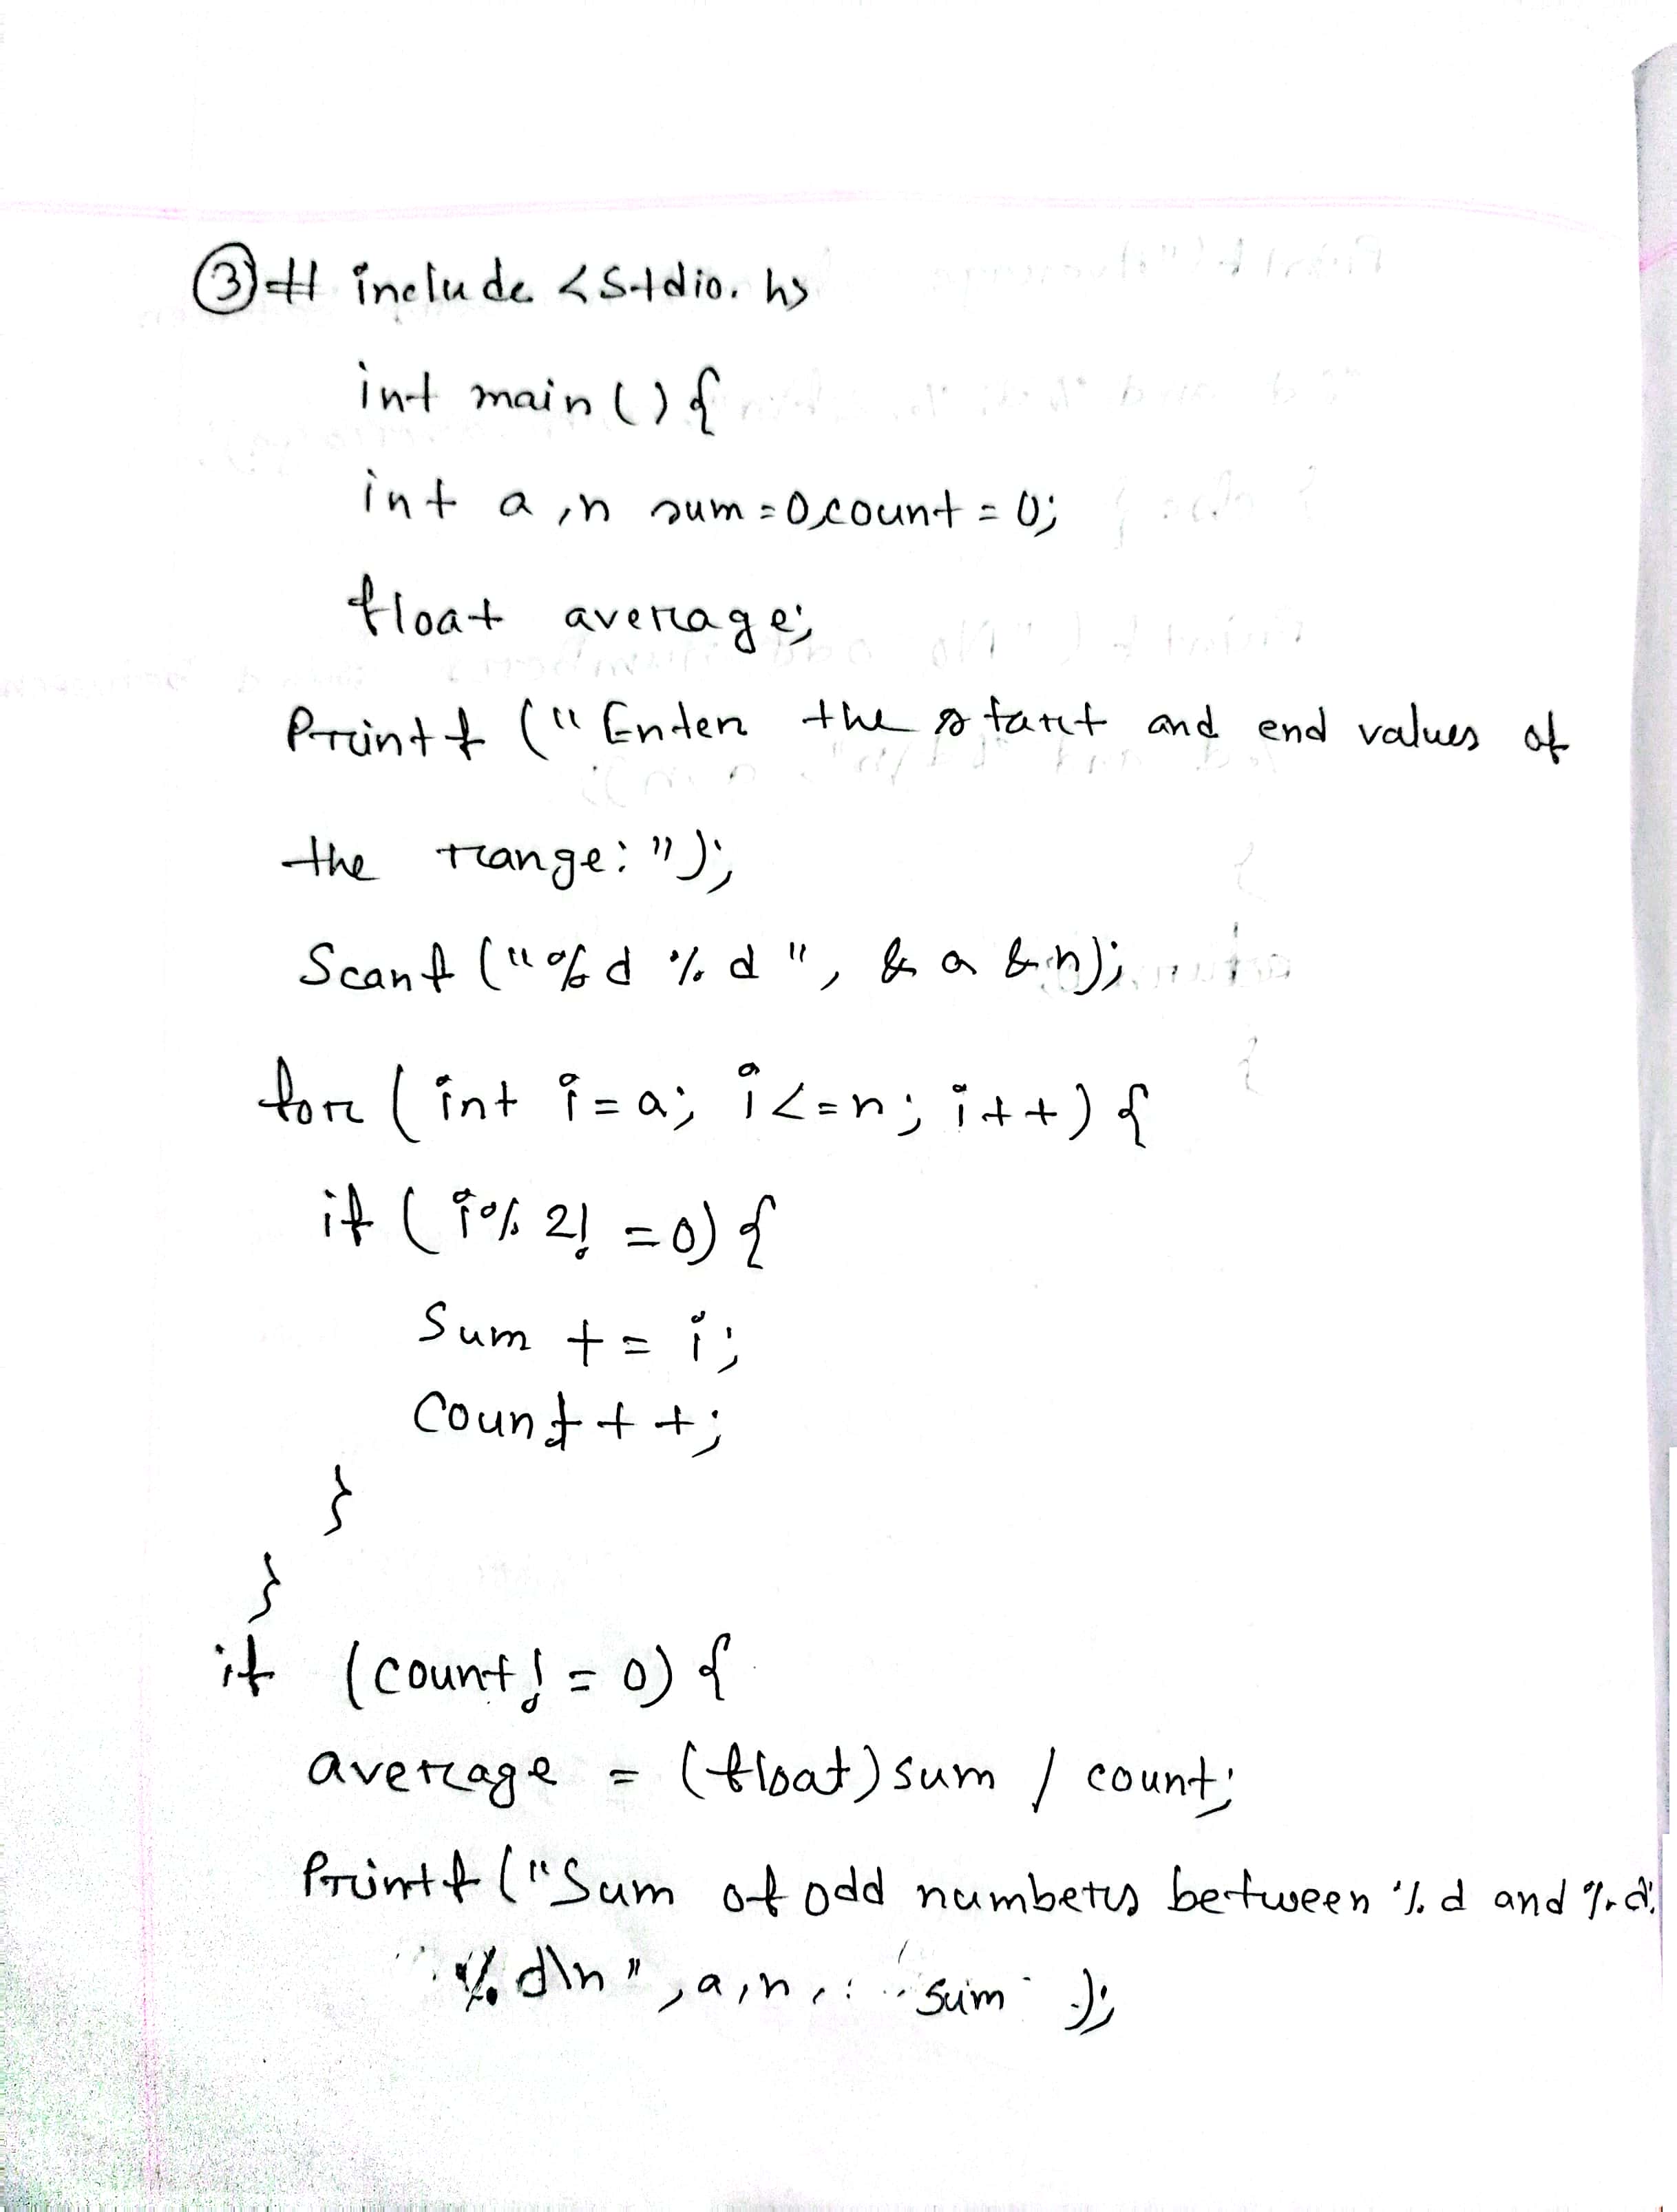 ③ # include <stdio.h>
int main () {
int a , n sum = 0, count = 0;
float average;
Printf ("Enter the start and end values of
the range: ");
Scanf ("%d %d ", & a & n);
for ( int i = a; i <= n ; i + + ) {
if ( i % 2! = 0) {
Sum + = i ;
Count + + ;
}
}
if (count! = 0) {
average = (float) sum / count;
Printf ("Sum of odd numbers between %d and %d:
%d\n" , a , n , sum );